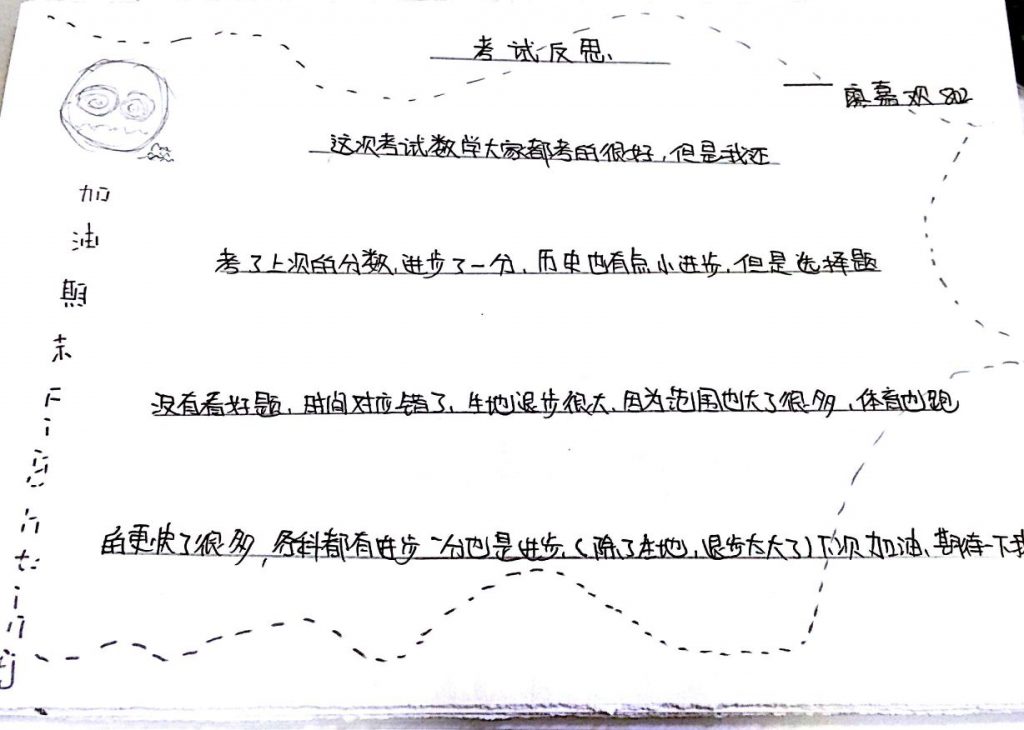 考试反思、
—— 廖嘉观 802
这次考试数学大家都考的很好，但是我还
考了上次的分数，进步了一分，历史也有点小进步，但是选择题
没有看好题，时间对应错了，生地退步很大，因为范围也大了很多，体育也跑
的更快了很多，各科都有进步一分也是进步，（除了生地，退步太大了）下次加油、期待一下我
加油期末Fighting